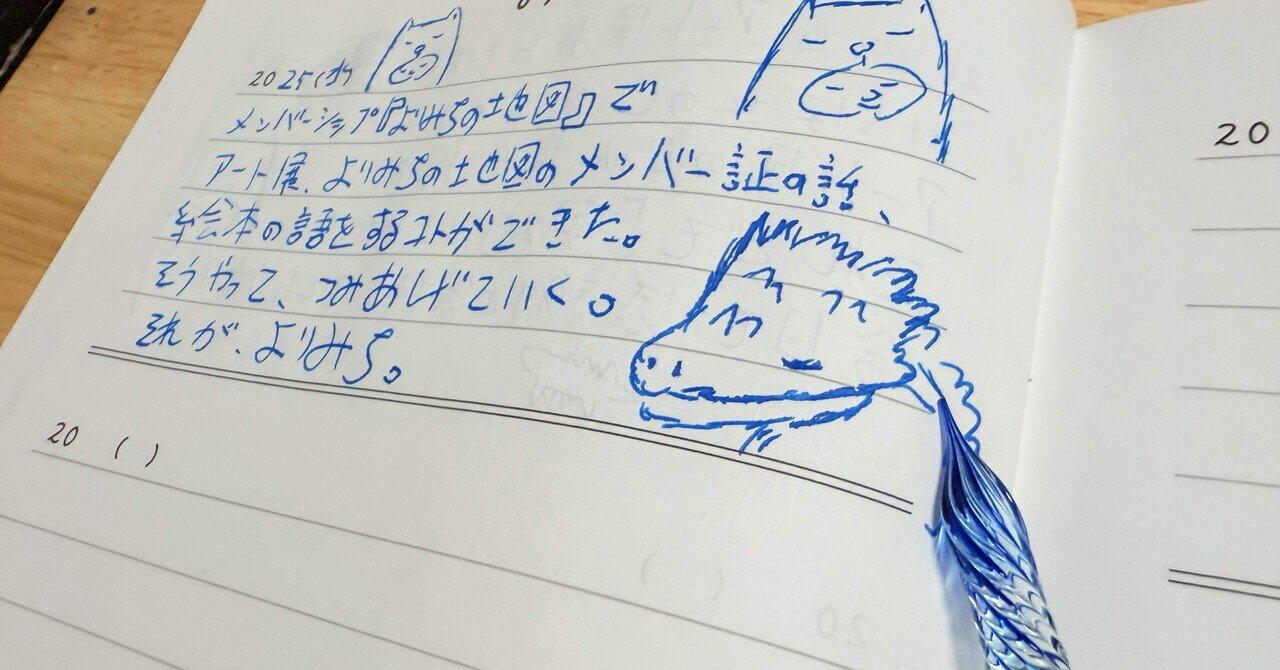 2025(水)
メンバーシップ『よりみちの地図』で
アート展、よりみちの地図のメンバー証の話、
絵本の話をするコトができた。
そうやって、つみあげていく。
それが、よりみち。
20 ( )
20